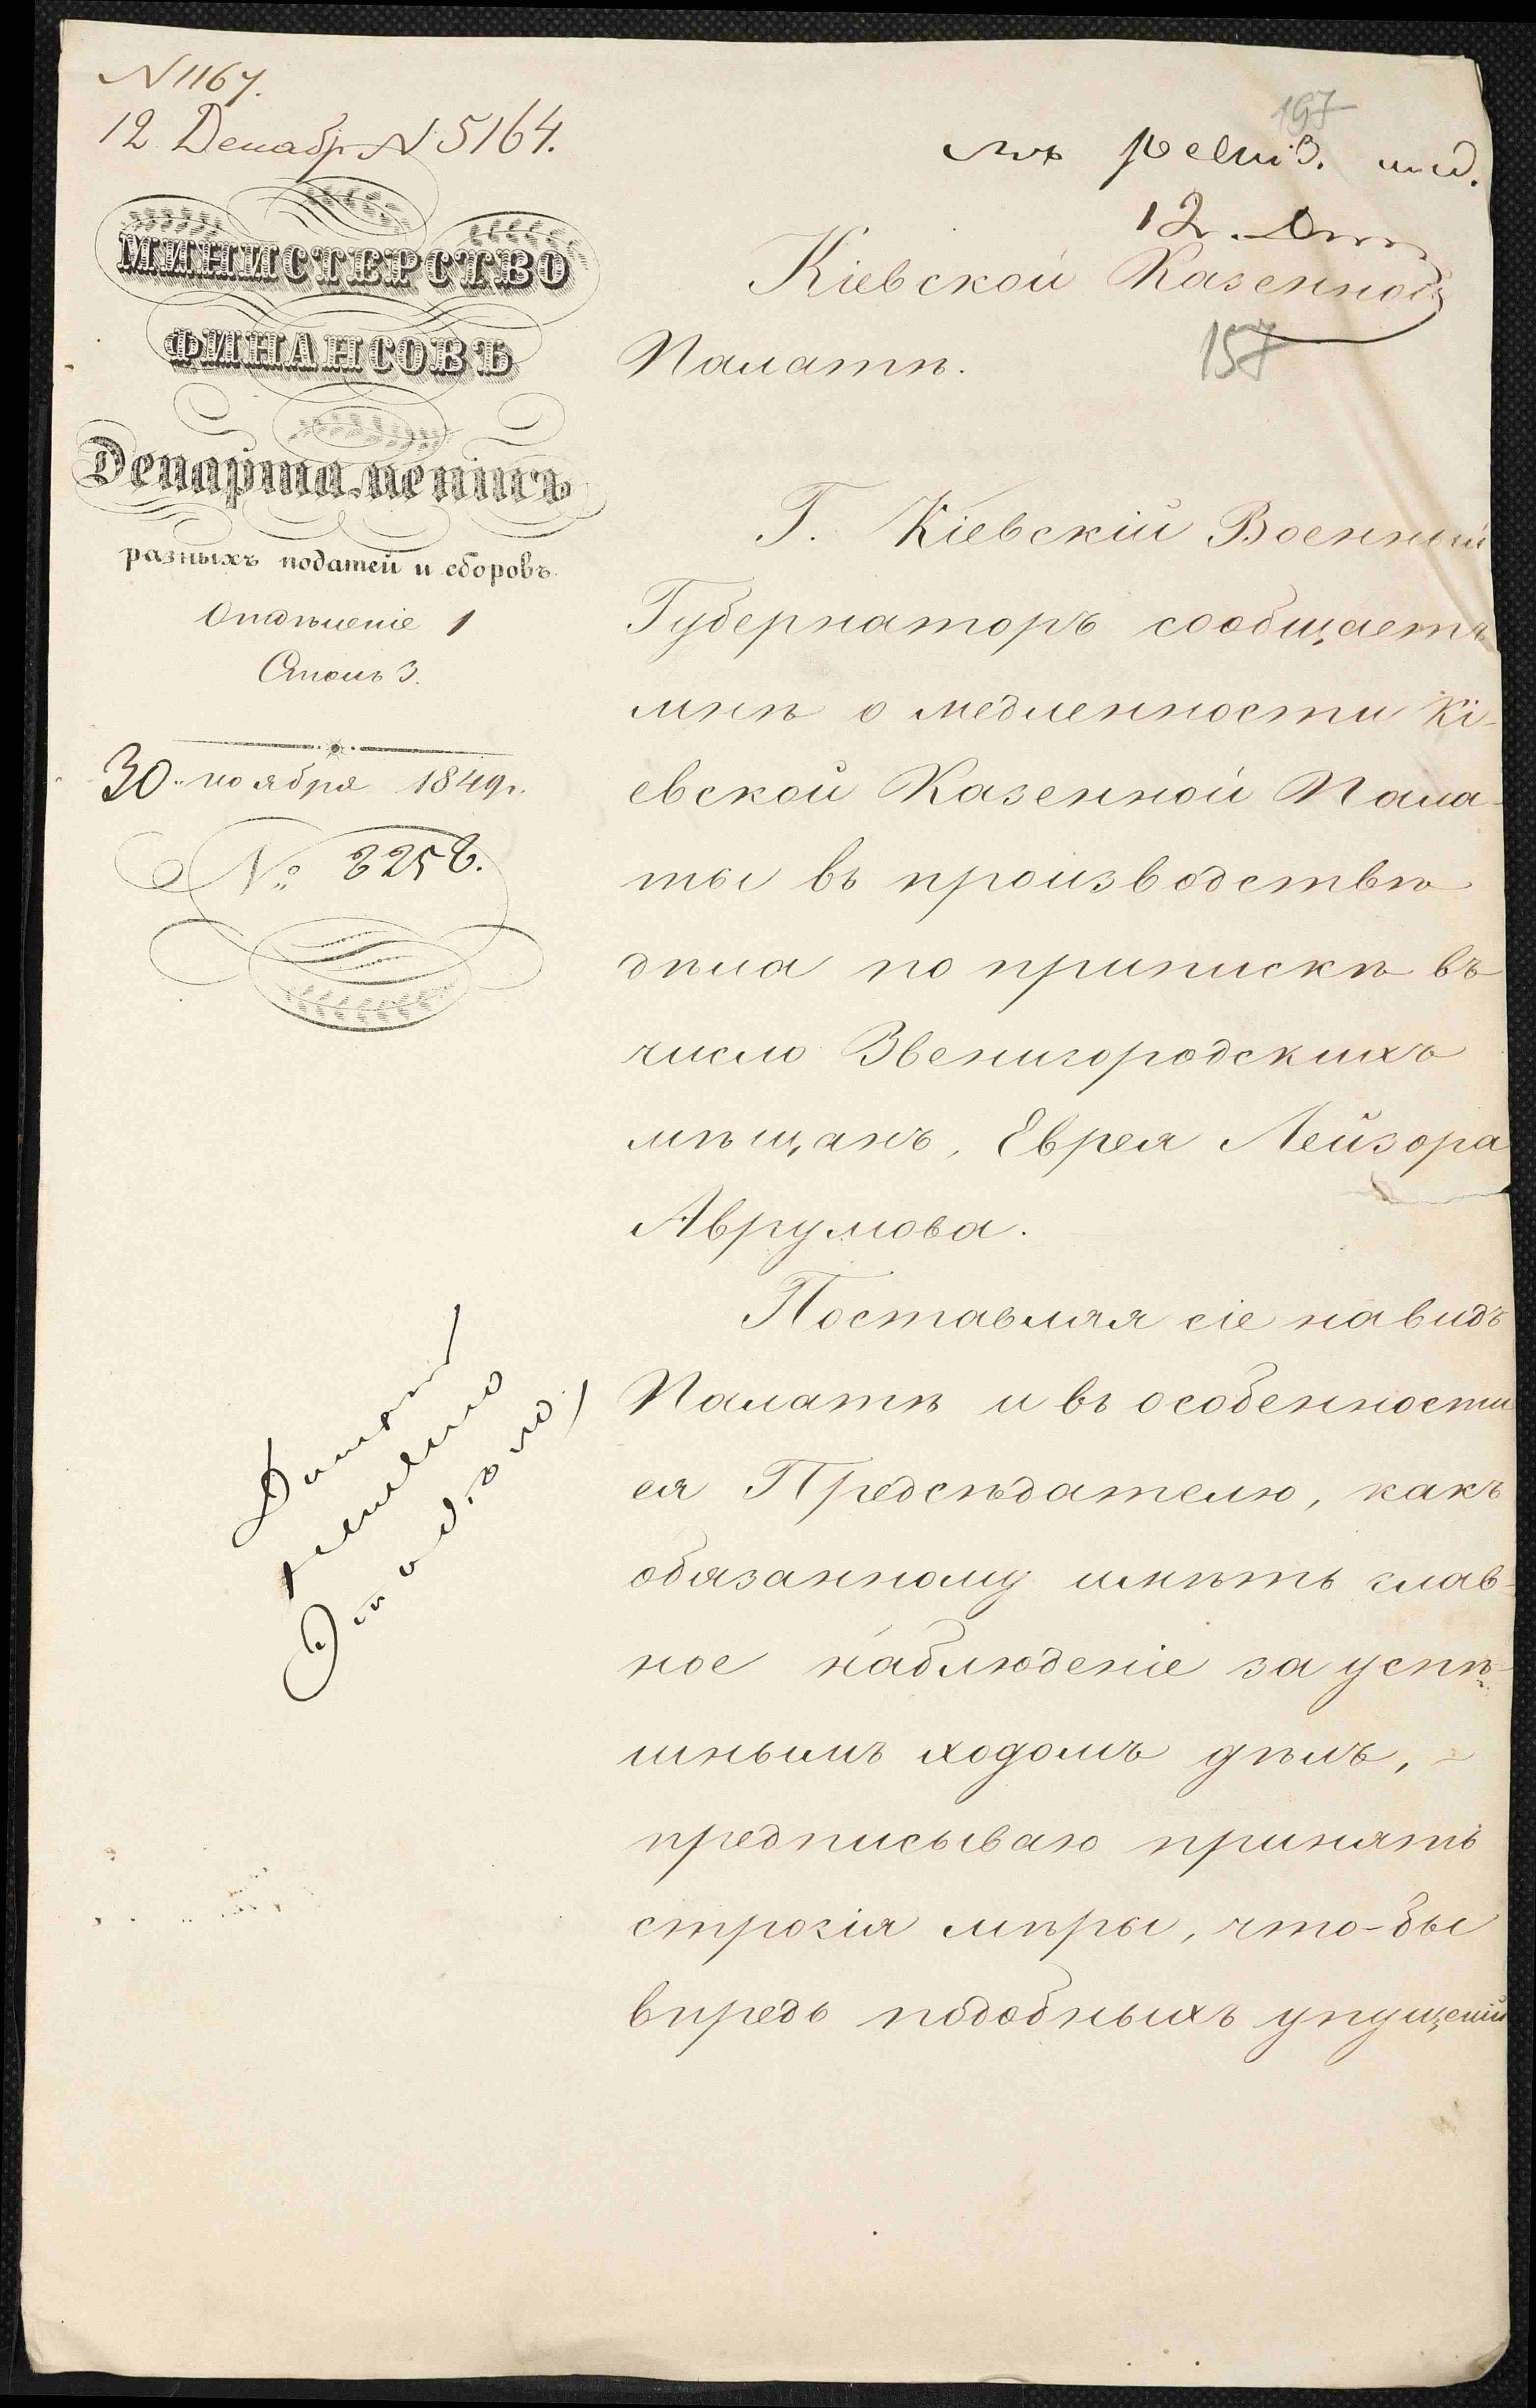 N 1167.
12 Декабр N 5164.
197
12.
МИНИСТЕРСТВО
ФИНАНСОВЪ
Департаментъ
разныхъ податей и сборовъ.
Отдѣленіе 1
Столъ 3.
30 ноября 1849 г.
№ 8258.
Кіевской Казенной
Палатѣ.
157
Г. Кіевскій Военный
Губернаторъ сообщаетъ
мнѣ о медленности Кі-
евской Казенной Пала-
ты въ производствѣ
дѣла по припискѣ въ
число Звенигородскихъ
мѣщанъ, Еврея Лейзора
Аврумова.
Поставляя сіе на видъ
Палатѣ и въ особенности
ея Предсѣдателю, какъ
обязанному имѣть глав-
ное наблюденіе за успѣ-
шнымъ ходомъ дѣлъ,
предписываю принять
строгія мѣры, что-бы
впредь подобныхъ упущеній